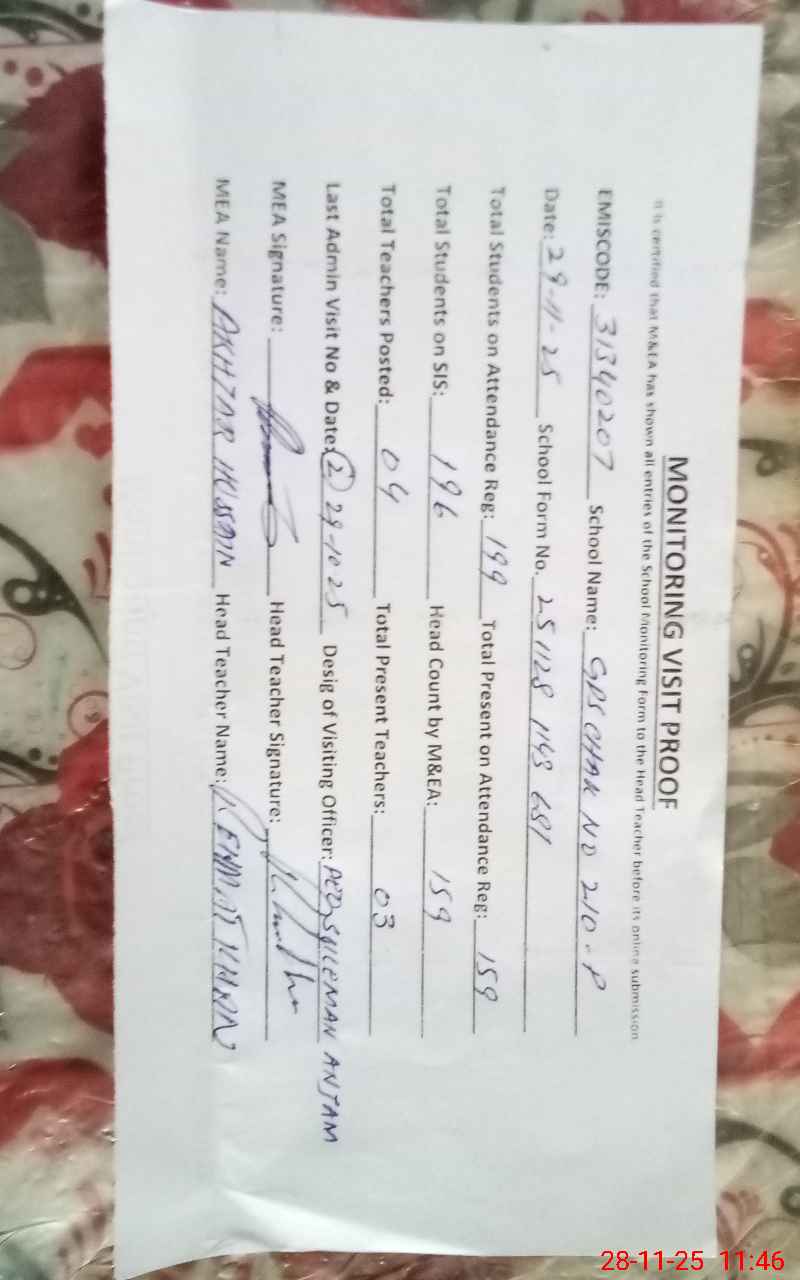 MONITORING VISIT PROOF
It is certified that M&EA has shown all entries of the School Monitoring Form to the Head Teacher before its online submission
EMISCODE: 31340207 School Name: GPS CHAK NO 210-P
Date: 29-11-25 School Form No. 251128 1143 681
Total Students on Attendance Reg: 199 Total Present on Attendance Reg: 159
Total Students on SIS: 196 Head Count by M&EA: 159
Total Teachers Posted: 04 Total Present Teachers: 03
Last Admin Visit No & Date: (2) 29-10 25 Desig of Visiting Officer: SULEMAN ANJAM
MEA Signature: Head Teacher Signature:
MEA Name: AKHTAR HUSSAIN Head Teacher Name: REHMAT KHAN
28-11-25 11:46